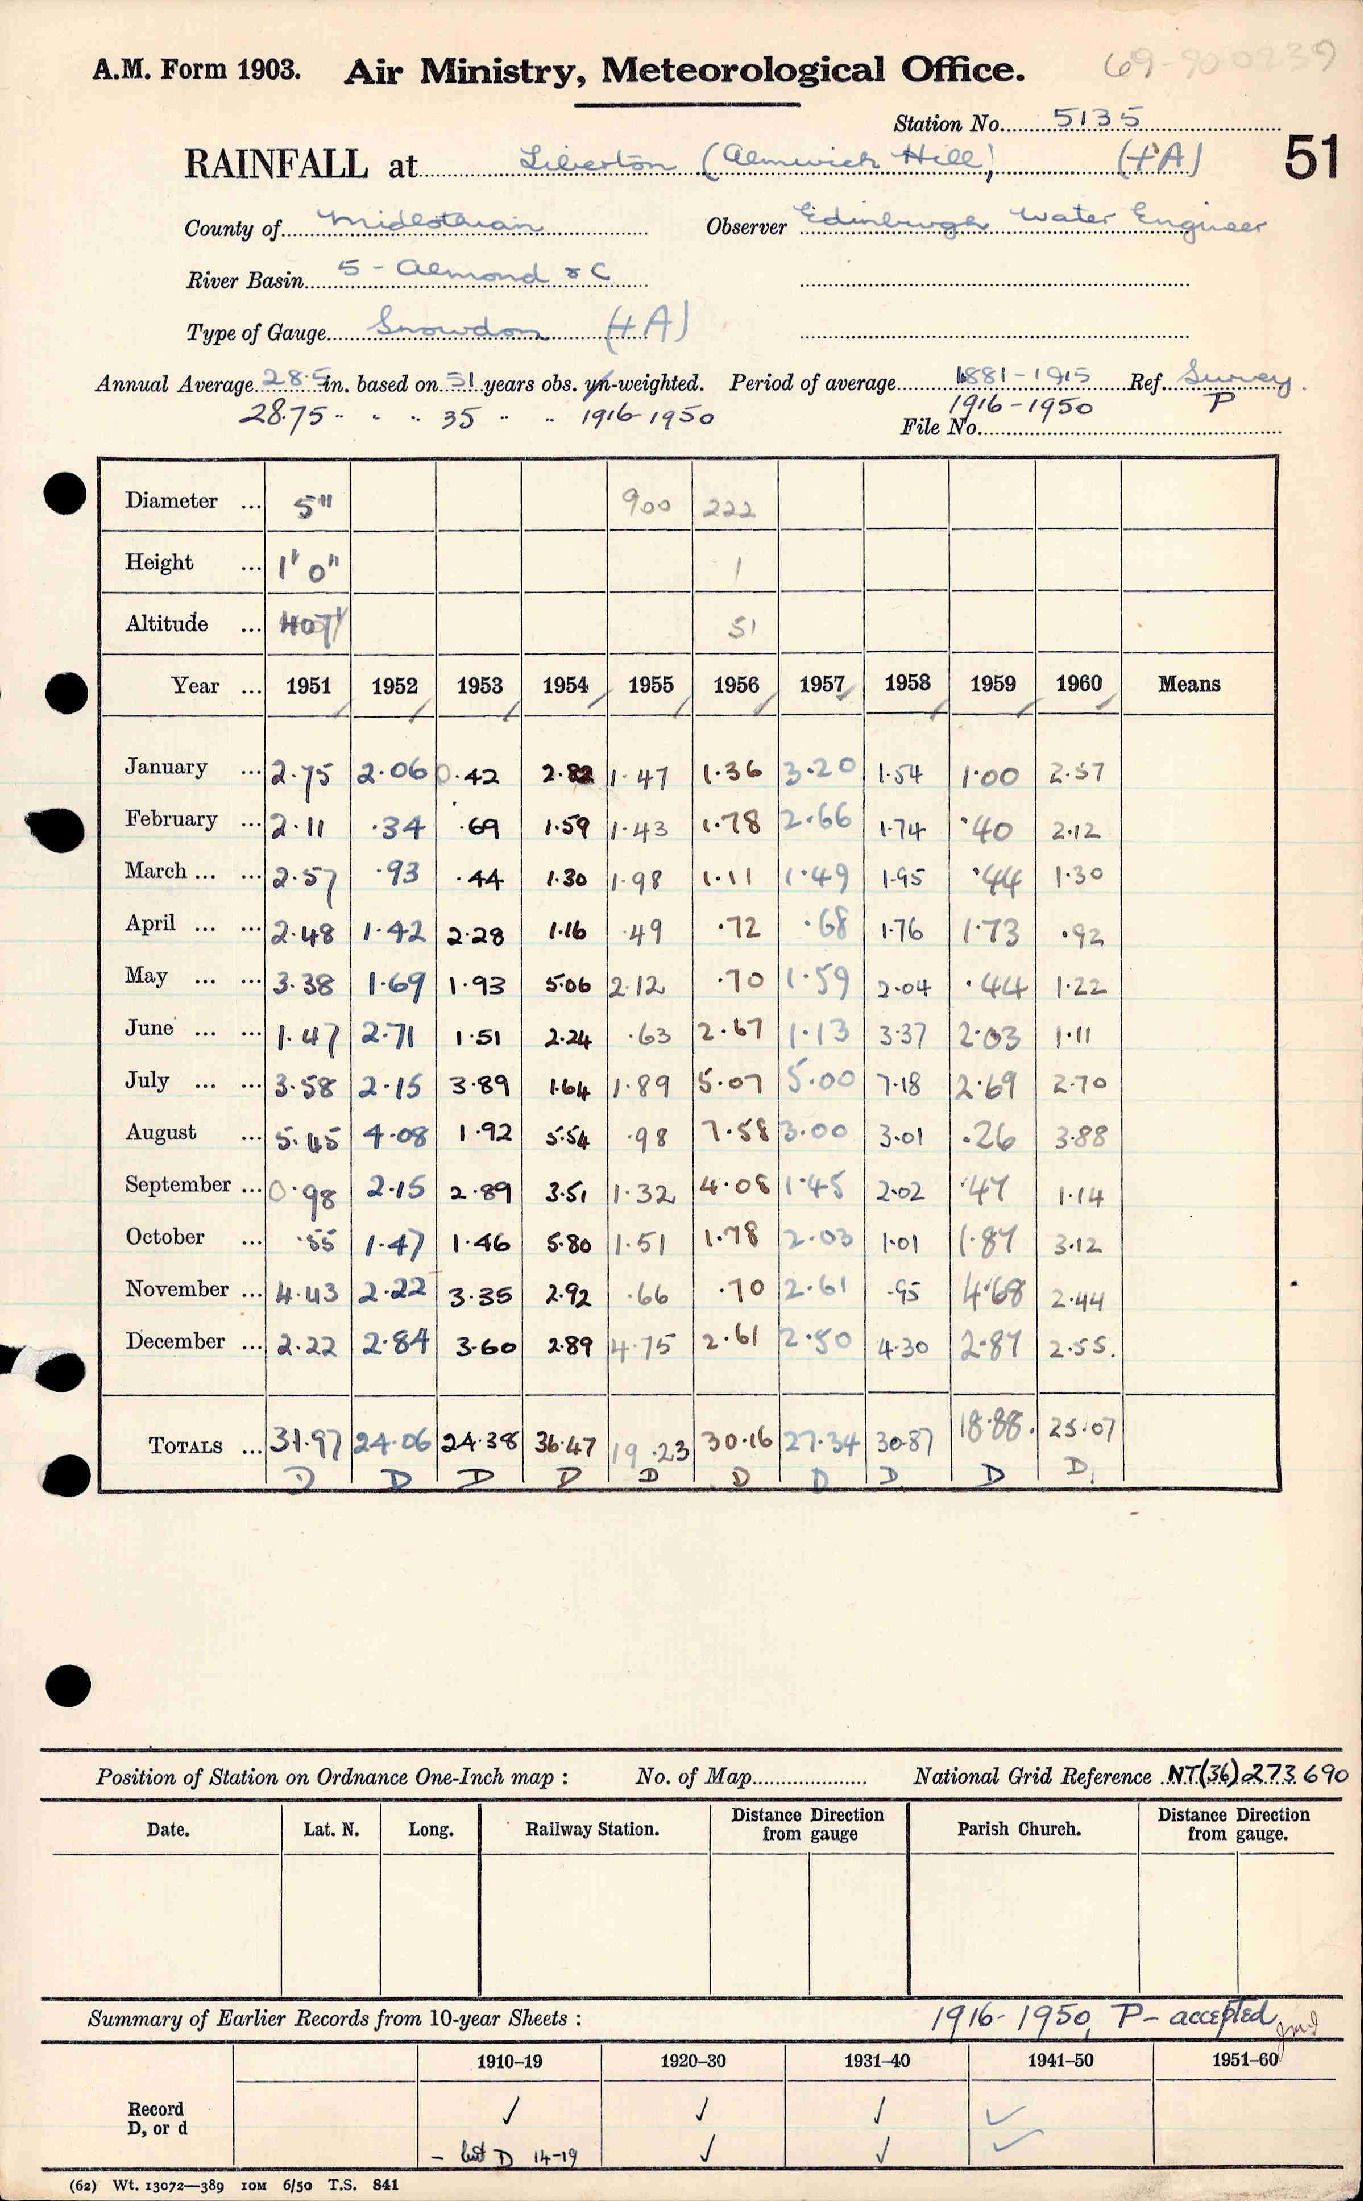 A.M. Form 1903. Air Ministry, Meteorological Office. 69-900239
Station No. 5135
RAINFALL at Liberton (Alnwick Hill) (+A) 51
County of Midlothian Observer Edinburgh Water Engineer
River Basin 5 - Almond & C
Type of Gauge Snowdon (+A)
Annual Average 28.5 in. based on 51 years obs. un-weighted. Period of average 1881-1915 Ref. Survey
28.75 " " " 35 " " 1916-1950 1916-1950 P
File No.
Diameter ... 5" 900 222
Height ... 1' 0" 1
Altitude ... 407' 51
Year ... 1951 1952 1953 1954 1955 1956 1957 1958 1959 1960 Means
January ... 2.75 2.06 0.42 2.82 1.47 1.36 3.20 1.54 1.00 2.57
February ... 2.11 .34 .69 1.59 1.43 1.78 2.66 1.74 .40 2.12
March ... ... 2.57 .93 .44 1.30 1.98 1.11 1.49 1.95 .44 1.30
April ... ... 2.48 1.42 2.28 1.16 .49 .72 .68 1.76 1.73 .92
May ... ... 3.38 1.69 1.93 5.06 2.12 .70 1.59 2.04 .44 1.22
June ... ... 1.47 2.71 1.51 2.24 .63 2.67 1.13 3.37 2.03 1.11
July ... ... 3.58 2.15 3.89 1.64 1.89 5.07 5.00 7.18 2.69 2.70
August ... 5.45 4.08 1.92 5.54 .98 7.58 3.00 3.01 .26 3.88
September ... 0.98 2.15 2.89 3.51 1.32 4.08 1.45 2.02 .47 1.14
October ... .55 1.47 1.46 5.80 1.51 1.78 2.03 1.01 1.87 3.12
November ... 4.43 2.22 3.35 2.92 .66 .70 2.61 .95 4.68 2.44
December ... 2.22 2.84 3.60 2.89 4.75 2.61 2.50 4.30 2.87 2.55.
TOTALS ... 31.97 24.06 24.38 36.47 19.23 30.16 27.34 30.87 18.88. 25.07
D D D D D D D D D D
Position of Station on Ordnance One-Inch map : No. of Map National Grid Reference NT(36) 273 690
Date. Lat. N. Long. Railway Station. Distance Direction from gauge Parish Church. Distance Direction from gauge.
Summary of Earlier Records from 10-year Sheets : 1916-1950, P - accepted
1910-19 1920-30 1931-40 1941-50 1951-60
Record ✓ ✓ ✓ ✓
D, or d - but D 14-19 ✓ ✓ ✓
(62) Wt. 13072—389 10M 6/50 T.S. 841